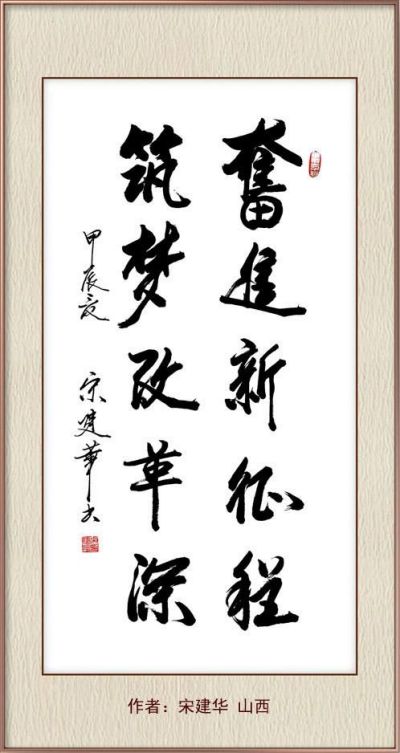 奮進新征程
筑梦改革深
甲辰夏 宋建華书
作者：宋建华 山西